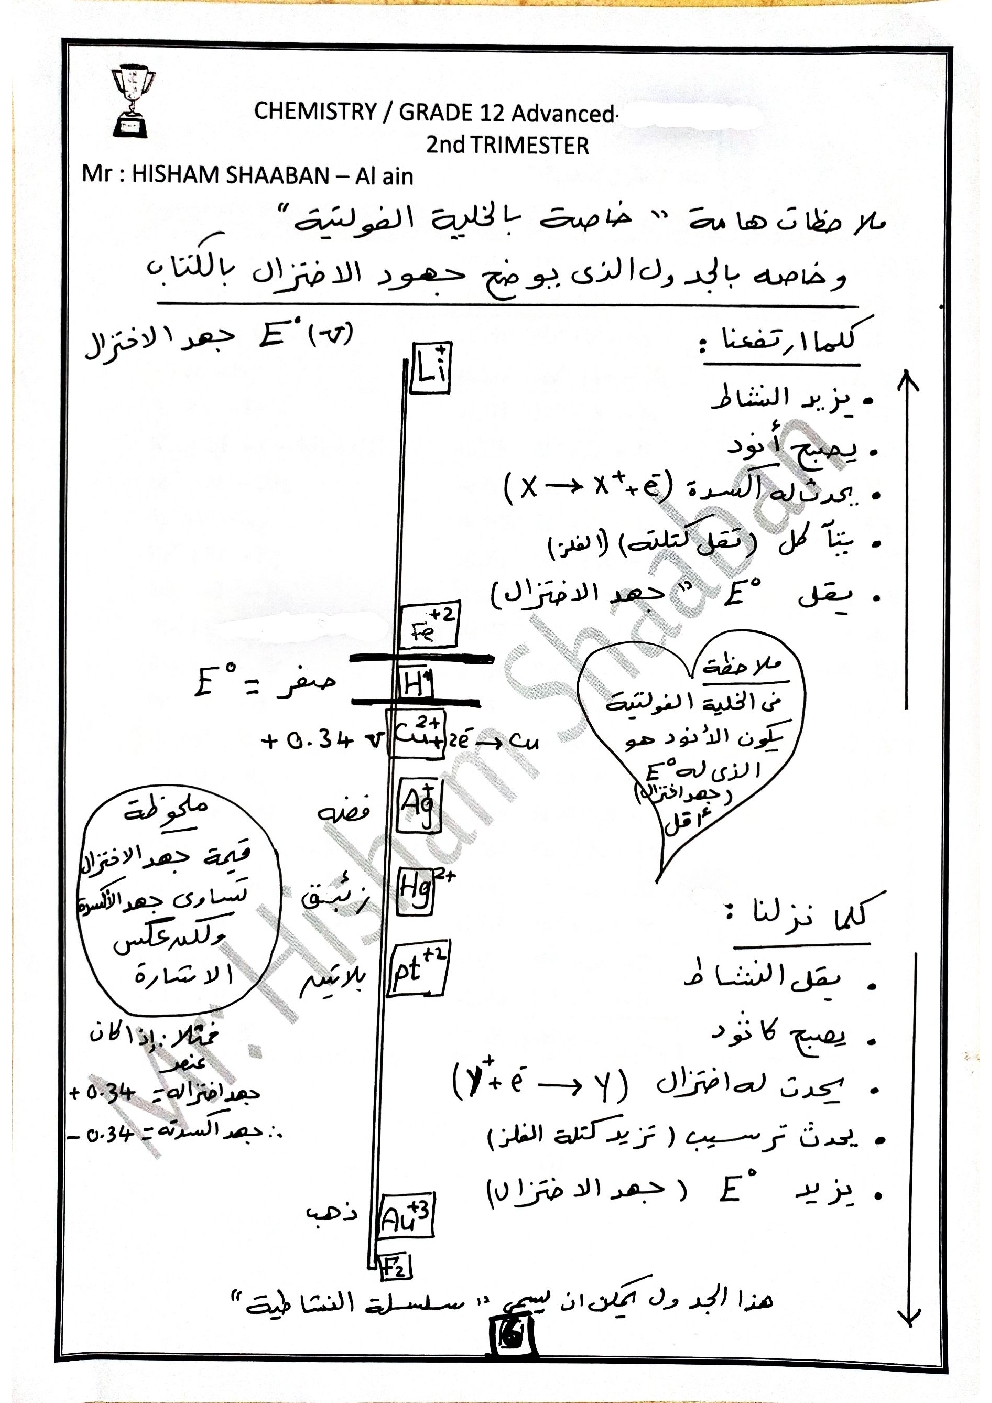 CHEMISTRY / GRADE 12 Advanced
2nd TRIMESTER
Mr : HISHAM SHAABAN – Al ain
ملاحظات هامة " خاصة بالخلية الفولتية "
وخاصه بالجدول الذى يوضح جهود الاختزال بالكتاب
كلما ارتفعنا :
• يزيد النشاط
• يصبح أنود
• يحدث له أكسدة (X → X⁺ + e⁻)
• يتآكل (تقل كتلته) (الفلز)
• يقل E° " جهد الاختزال)
جهد الاختزال E° (v)
Li⁺
Fe⁺²
E° = صفر
H⁺
+ 0.34 v Cu²⁺ + 2e⁻ → Cu
فضه Ag⁺
زئبق Hg²⁺
بلاتين pt⁺²
ذهب Au⁺³
F₂
ملاحظة
فى الخلية الفولتية
يكون الأنود هو
الذى له E°
(جهد اختزال)
أقل
ملحوظة
قيمة جهد الاختزال
تساوى جهد الأكسدة
ولكن عكس
الاشارة
فمثلا : إذا كان
عنصر
جهد اختزاله = 0.34 +
∴ جهد أكسدته = 0.34 -
كلما نزلنا :
• يقل النشاط
• يصبح كاثود
• يحدث له اختزال (Y⁺ + e⁻ → Y)
• يحدث ترسيب (تزيد كتلة الفلز)
• يزيد E° (جهد الاختزال)
هذا الجدول يمكن ان يسمى " سلسلة النشاطية "
6
Mr. Hisham Shaaban